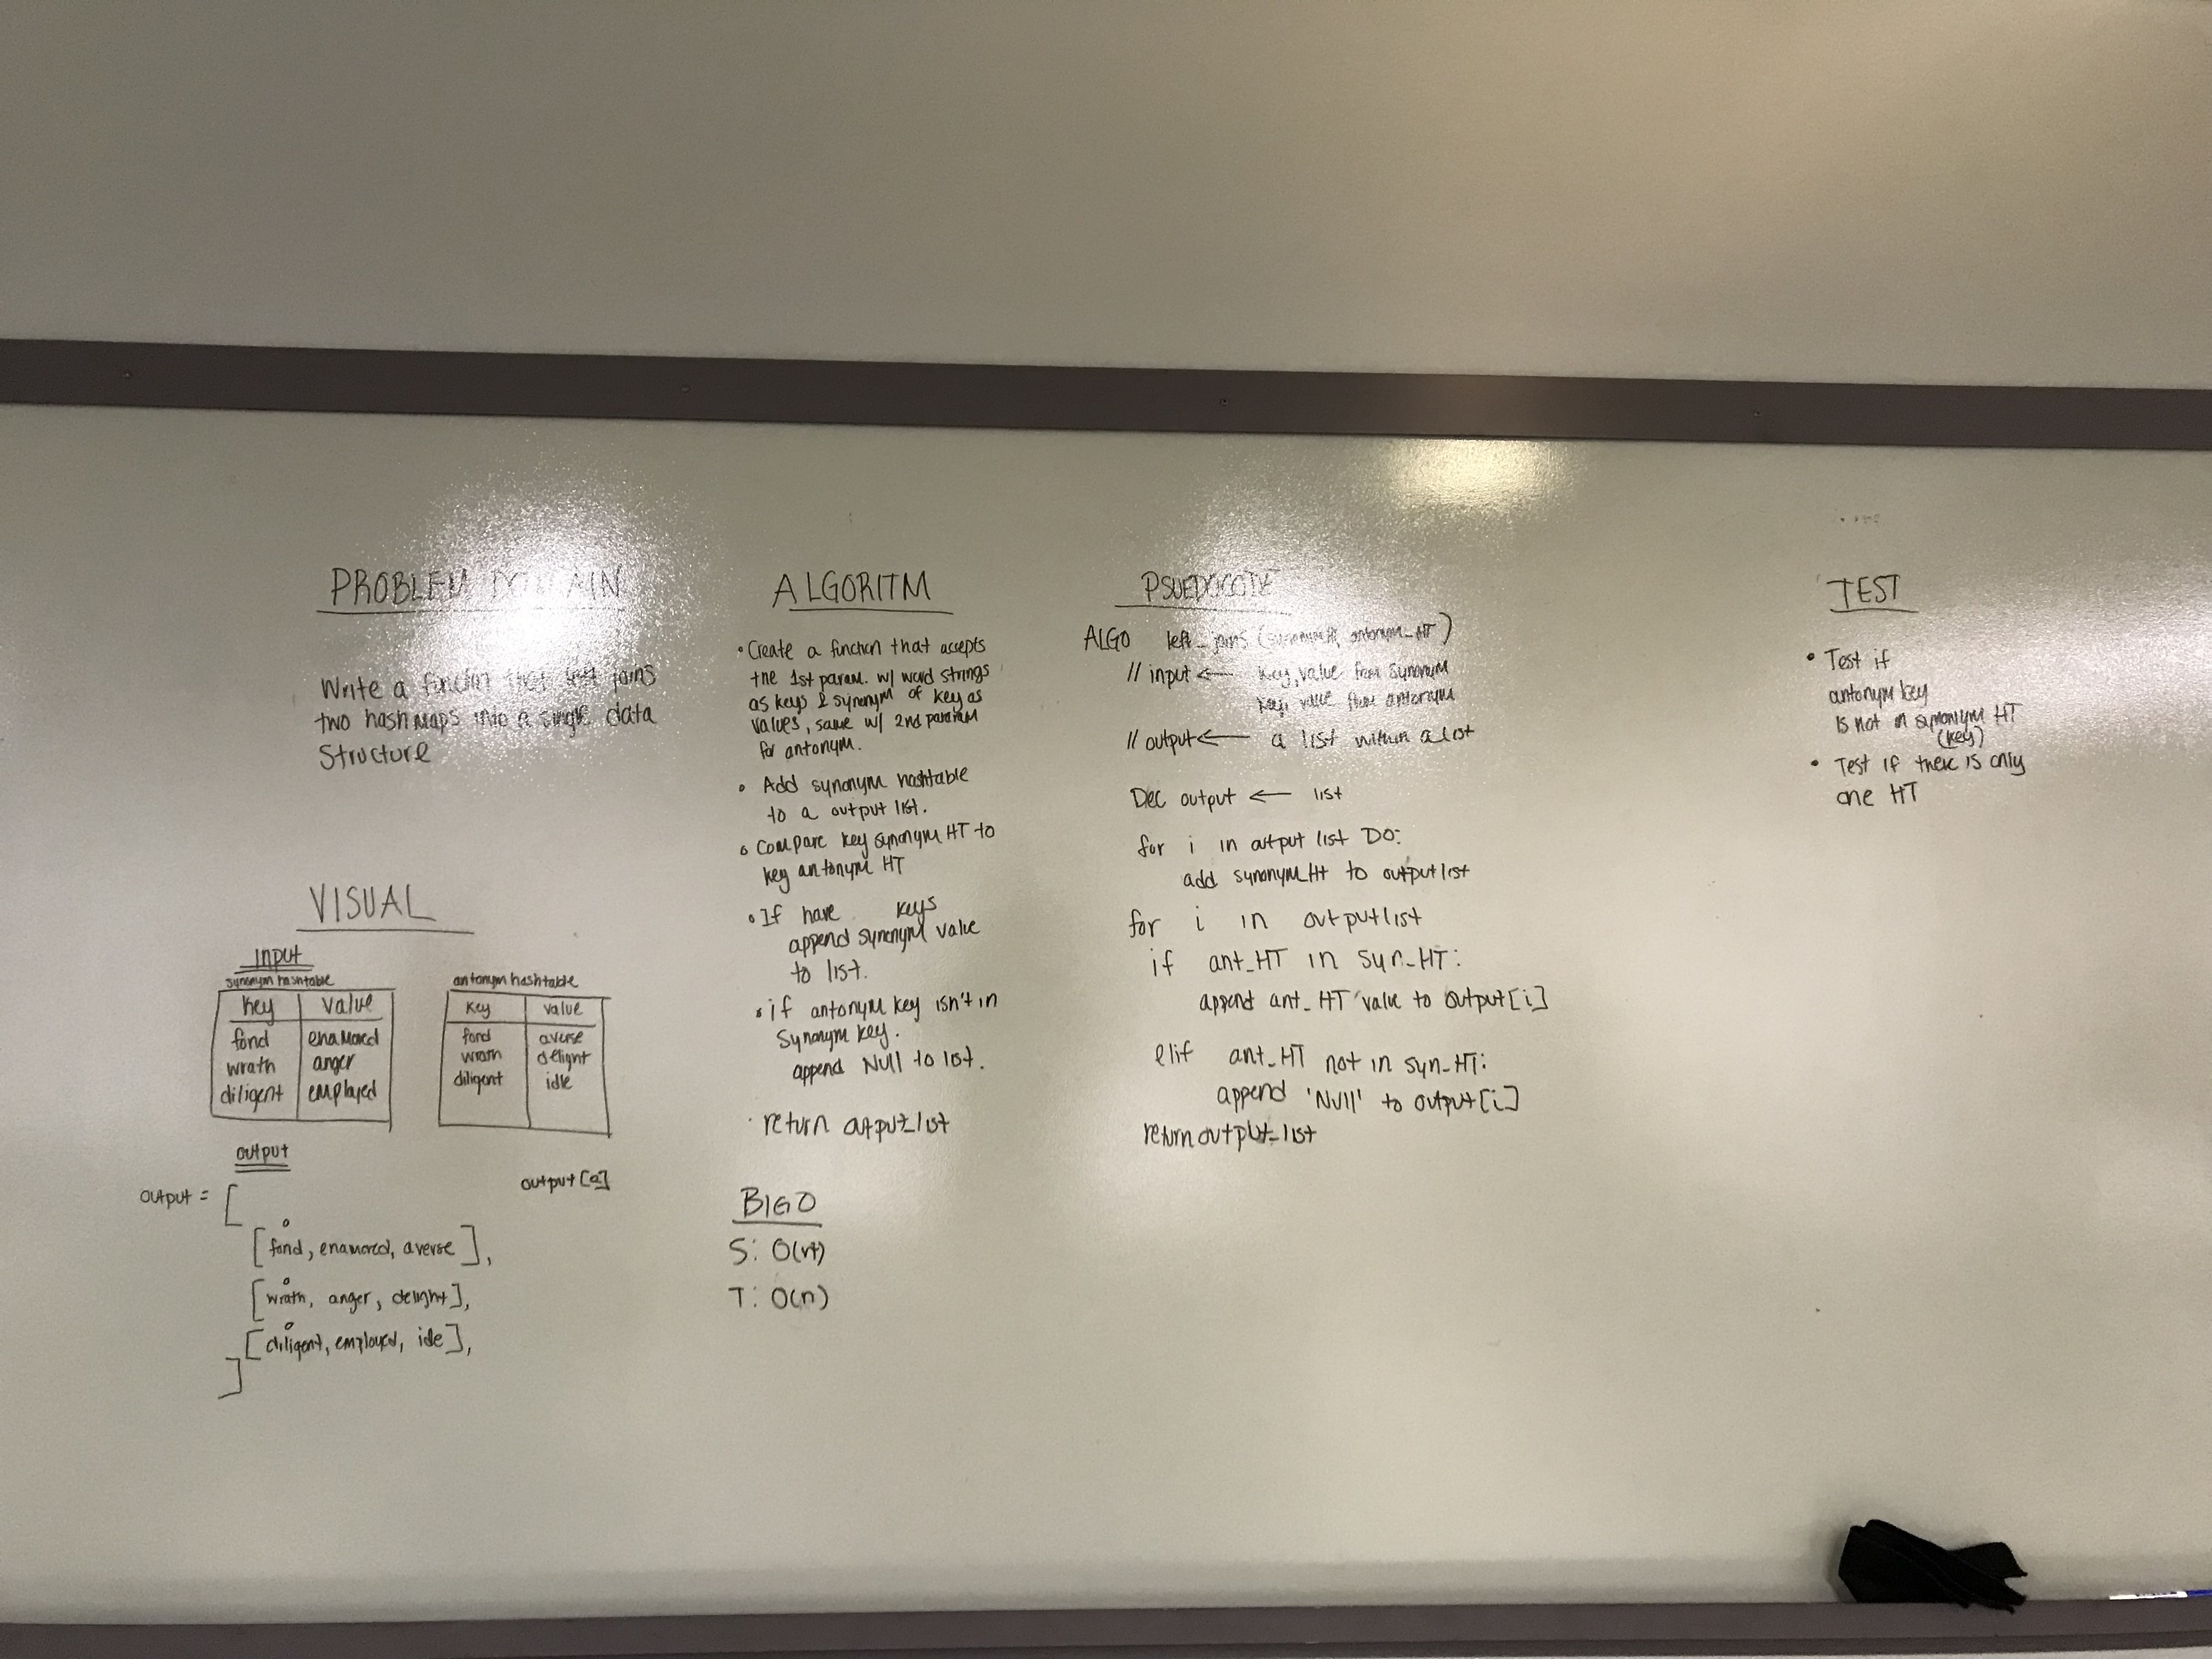 PROBLEM DOMAIN
Write a function that left joins
two hash maps into a single data
structure
VISUAL
INPUT
synonym hashtable
key value
fond enamored
wrath anger
diligent employed
antonym hashtable
key value
fond averse
wrath delight
diligent idle
output
output = [
[fond, enamored, averse],
[wrath, anger, delight],
[diligent, employed, idle],
]
output[0]
ALGORITM
• Create a function that accepts
the 1st param. w/ word strings
as keys & synonym of key as
values, same w/ 2nd param
for antonym.
• Add synonym hashtable
to a output list.
• Compare key synonym HT to
key antonym HT
• If have keys
append synonym value
to list.
• if antonym key isn't in
synonym key.
append Null to list.
• return output_list
BIG O
S: O(n)
T: O(n)
PSUEDOCODE
ALGO left_joins (synonym_HT, antonym_HT)
// input ← key, value from synonym
key, value from antonym
// output ← a list within a list
Dec output ← list
for i in output list DO:
add synonym_Ht to output list
for i in output list
if ant_HT in syn_HT:
append ant_HT value to output[i]
elif ant_HT not in syn_HT:
append 'Null' to output[i]
return output_list
TEST
• Test if
antonym key
is not in synonym HT
(key)
• Test if there is only
one HT